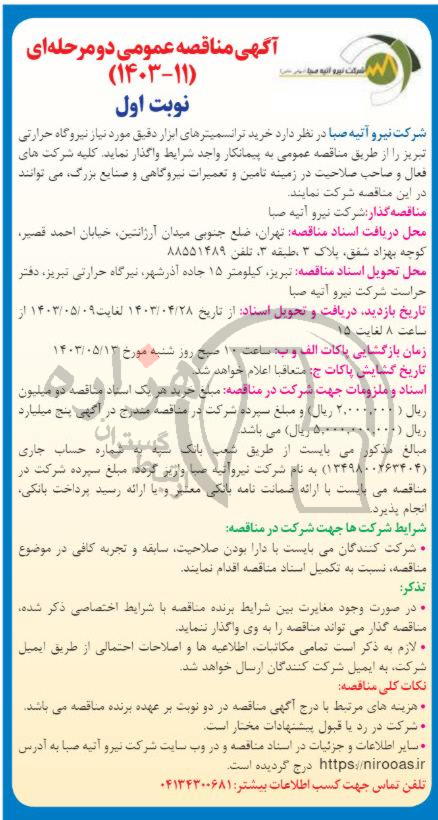 آگهی مناقصه عمومی دو مرحله‌ای
(۱۴۰۳-۱۱)
نوبت اول
شرکت نیرو آتیه صبا (سهامی خاص)
شرکت نیرو آتیه صبا در نظر دارد خرید ترانسمیترهای ابزار دقیق مورد نیاز نیروگاه حرارتی
تبریز را از طریق مناقصه عمومی به پیمانکار واجد شرایط واگذار نماید. کلیه شرکت های
فعال و صاحب صلاحیت در زمینه تامین و تعمیرات نیروگاهی و صنایع بزرگ، می توانند
در این مناقصه شرکت نمایند.
مناقصه‌گذار: شرکت نیرو آتیه صبا
محل دریافت اسناد مناقصه: تهران، ضلع جنوبی میدان آرژانتین، خیابان احمد قصیر،
کوچه بهزاد شفق، پلاک ۳ ،طبقه ۳، تلفن ۸۸۵۵۱۴۸۹
محل تحویل اسناد مناقصه: تبریز، کیلومتر ۱۵ جاده آذرشهر، نیرگاه حرارتی تبریز، دفتر
حراست شرکت نیرو آتیه صبا
تاریخ بازدید، دریافت و تحویل اسناد: از تاریخ ۱۴۰۳/۰۴/۲۸ لغایت۱۴۰۳/۰۵/۰۹ از
ساعت ۸ لغایت ۱۵
زمان بازگشایی پاکات الف و ب: ساعت ۱۰ صبح روز شنبه مورخ ۱۴۰۳/۰۵/۱۳
تاریخ گشایش پاکات ج: متعاقبا اعلام خواهد شد.
اسناد و ملزومات جهت شرکت در مناقصه: مبلغ خرید هر یک اسناد مناقصه دو میلیون
ریال (۲,۰۰۰,۰۰۰ ریال) و مبلغ سپرده شرکت در مناقصه مندرج در آگهی پنج میلیارد
ریال (۵,۰۰۰,۰۰۰,۰۰۰ ریال) می باشد.
مبالغ مذکور می بایست از طریق شعب بانک سپه به شماره حساب جاری
(۱۳۴۹۸۰۰۲۶۳۴۰۴) به نام شرکت نیروآتیه صبا واریز گردد. مبلغ سپرده شرکت در
مناقصه می بایست با ارائه ضمانت نامه بانکی معتبر و یا ارائه رسید پرداخت بانکی،
انجام پذیرد.
شرایط شرکت ها جهت شرکت در مناقصه:
• شرکت کنندگان می بایست با دارا بودن صلاحیت، سابقه و تجربه کافی در موضوع
مناقصه، نسبت به تکمیل اسناد مناقصه اقدام نمایند.
تذکر:
• در صورت وجود مغایرت بین شرایط برنده مناقصه با شرایط اختصاصی ذکر شده،
مناقصه گذار می تواند مناقصه را به وی واگذار ننماید.
• لازم به ذکر است تمامی مکاتبات، اطلاعیه ها و اصلاحات احتمالی از طریق ایمیل
شرکت، به ایمیل شرکت کنندگان ارسال خواهد شد.
نکات کلی مناقصه:
• هزینه های مرتبط با درج آگهی مناقصه در دو نوبت بر عهده برنده مناقصه می باشد.
• شرکت در رد یا قبول پیشنهادات مختار است.
• سایر اطلاعات و جزئیات در اسناد مناقصه و در وب سایت شرکت نیرو آتیه صبا به آدرس
https://nirooas.ir درج گردیده است.
تلفن تماس جهت کسب اطلاعات بیشتر: ۰۴۱۳۴۳۰۰۶۸۱